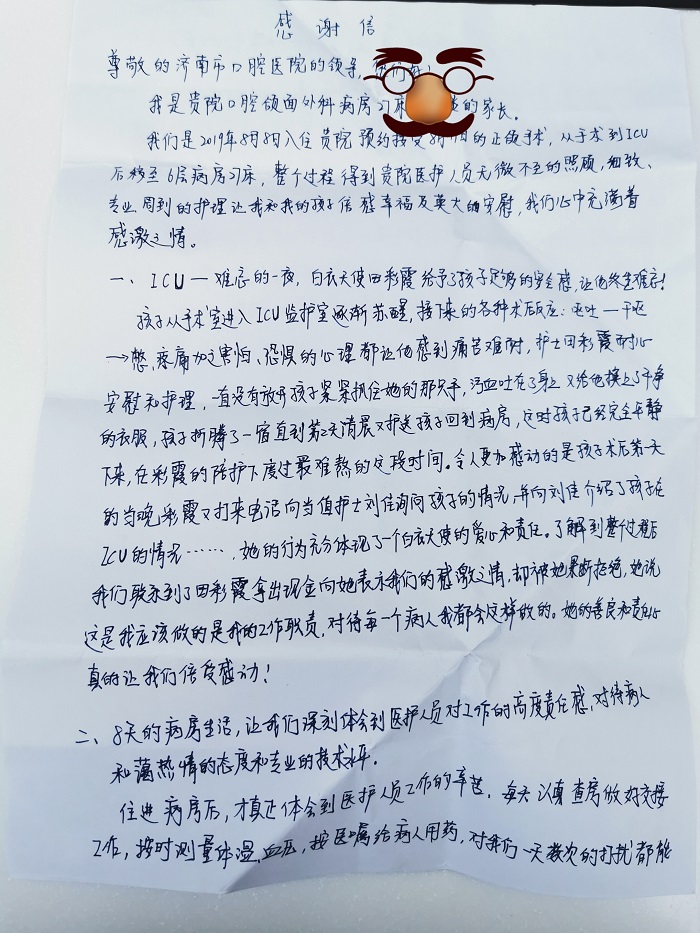 感谢信
尊敬的济南市口腔医院的领导,
我是贵院口腔颌面外科病房 的家长。
我们是2019年8月8日入住贵院 预约接受 的正颌手术,从手术到ICU
后移至6层病房 床,整个过程得到贵院医护人员无微不至的照顾,细致、
专业周到的护理让我和我的孩子倍感幸福及莫大的安慰,我们心中充满着
感激之情。
一、ICU — 难忘的一夜,白衣天使田彩霞给予了孩子足够的安全感,让他终生难忘!
孩子从手术室进入ICU监护室逐渐苏醒,接下来的各种术后反应:呕吐—干呕
→憋,疼痛加之害怕、恐惧的心理都让他感到痛苦难耐,护士田彩霞耐心
安慰和护理,一直没有放开孩子紧紧抓住她的那只手,污血吐在了身上又给他换上了干净
的衣服,孩子折腾了一宿直到第2天清晨又护送孩子回到病房,这时孩子已经完全平静
下来,在彩霞的陪护下度过最难熬的这段时间。令人更加感动的是孩子术后第一天
的当晚彩霞又打来电话向当值护士刘佳询问孩子的情况,并向刘佳介绍了孩子在
ICU的情况……,她的行为充分体现了一个白衣天使的爱心和责任。了解到整个过程后
我们联系到了田彩霞拿出现金向她表示我们的感激之情,却被她果断拒绝,她说
这是我应该做的是我的工作职责,对待每一个病人我都会这样做的。她的善良和责任心
真的让我们倍受感动!
二、8天的病房生活,让我们深刻体会到医护人员对工作的高度责任感,对待病人
和蔼热情的态度和专业的技术水平。
住进病房后,才真正体会到医护人员工作的辛苦。每天认真查房做好交接
工作,按时测量体温,血压,按医嘱给病人用药,对我们一天数次的打扰都能